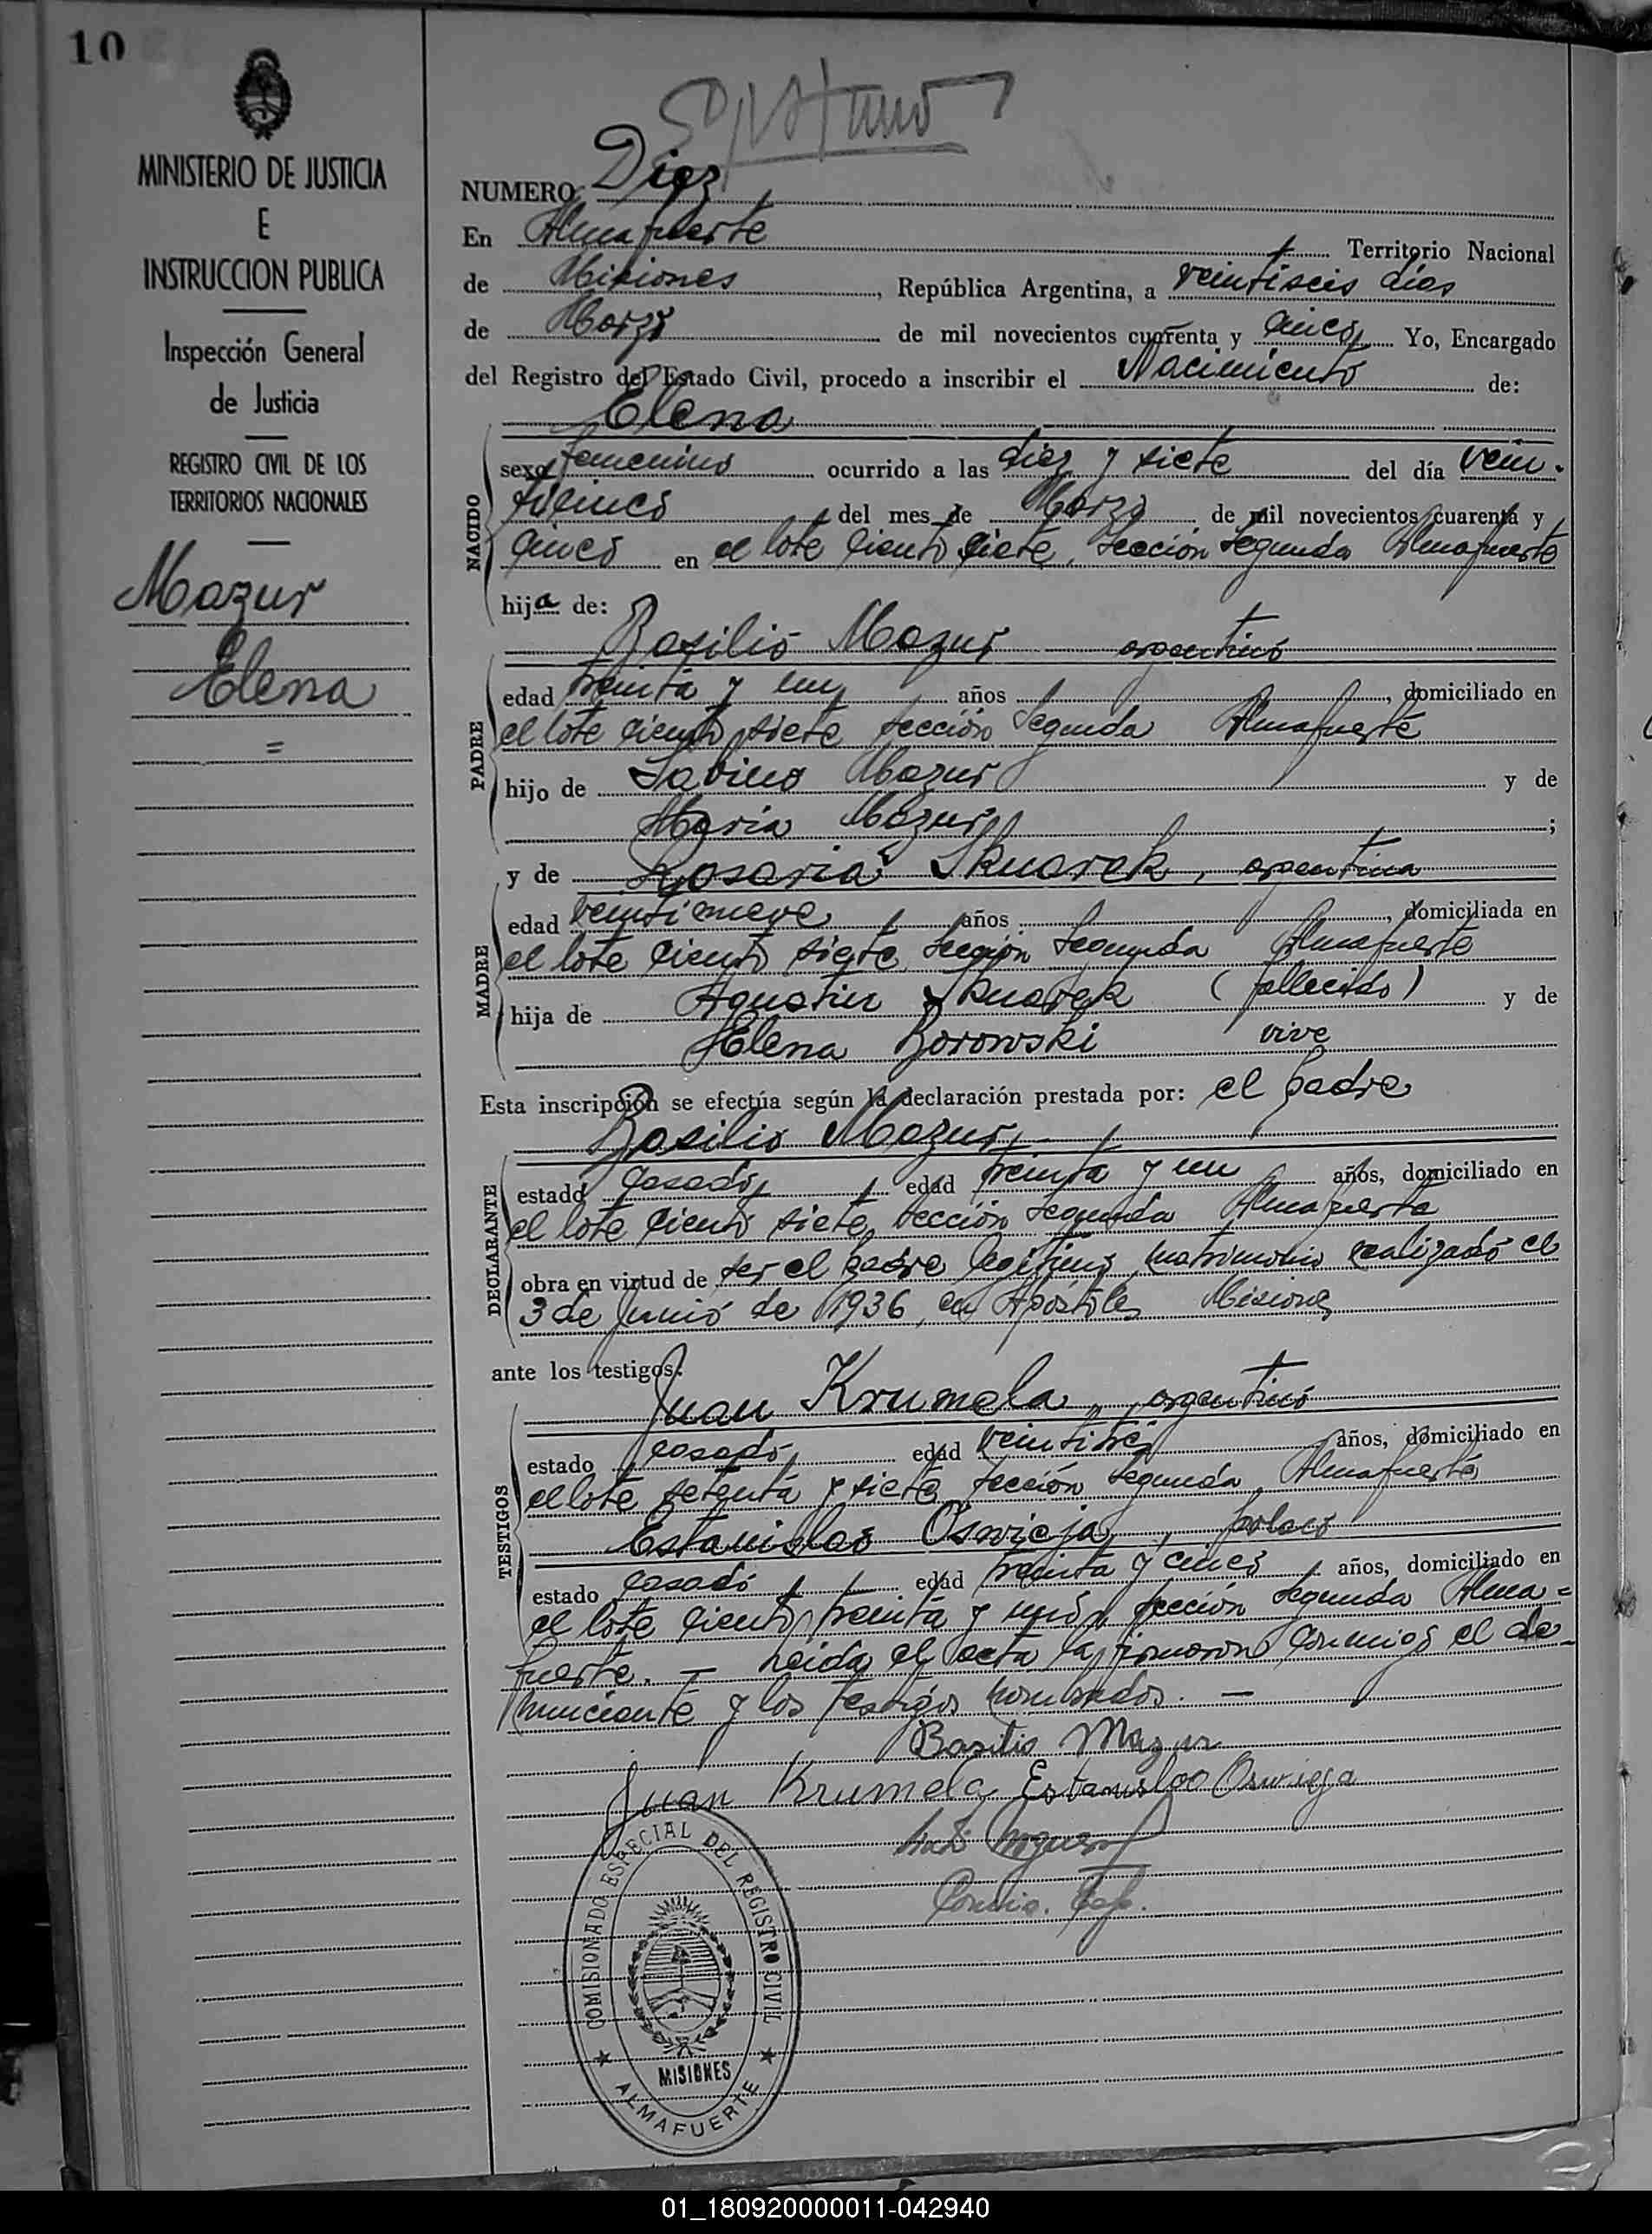 10
MINISTERIO DE JUSTICIA
E
INSTRUCCION PUBLICA
Inspección General
de Justicia
REGISTRO CIVIL DE LOS
TERRITORIOS NACIONALES
Mazur
Elena
=
NUMERO Diez
En Almafuerte Territorio Nacional
de Misiones, República Argentina, a veintiseis dias
de Marzo de mil novecientos cuarenta y cinco Yo, Encargado
del Registro del Estado Civil, procedo a inscribir el Nacimiento de:
Elena
NACIDO
sexo femenino ocurrido a las diez y siete del día vein-
ticinco del mes de Marzo de mil novecientos cuarenta y
cinco en el lote ciento siete, sección segunda Almafuerte
hija de:
PADRE
Basilio Mazur argentino
edad treinta y un años, domiciliado en
el lote ciento siete sección segunda Almafuerte
hijo de Sabino Mazur y de
Maria Mazur;
y de Rosaria Skuarek, argentina
MADRE
edad veintinueve años, domiciliada en
el lote ciento siete, sección segunda Almafuerte
hija de Agustin Skuarek (fallecido) y de
Elena Borowski vive
Esta inscripción se efectúa según la declaración prestada por: el padre
Basilio Mazur
DECLARANTE
estado casado, edad treinta y un años, domiciliado en
el lote ciento siete, sección segunda Almafuerte
obra en virtud de ser el padre legitimo, matrimonio realizado el
3 de Junio de 1936, en Apóstoles Misiones
ante los testigos:
TESTIGOS
Juan Krumela, argentino
estado casado, edad veintitres años, domiciliado en
el lote setenta y siete, sección segunda, Almafuerte
Estanislao Oswieja, polaco
estado casado edad treinta y cinco años, domiciliado en
el lote ciento treinta y uno, sección segunda Alma=
fuerte. — Leida el acta la firmaron conmigo el de-
nunciante y los testigos nombrados. —
Basilio Mazur
Juan Krumela Estanislao Oswieja
COMISIONADO ESPECIAL DEL REGISTRO CIVIL
MISIONES
ALMAFUERTE
01_180920000011-042940